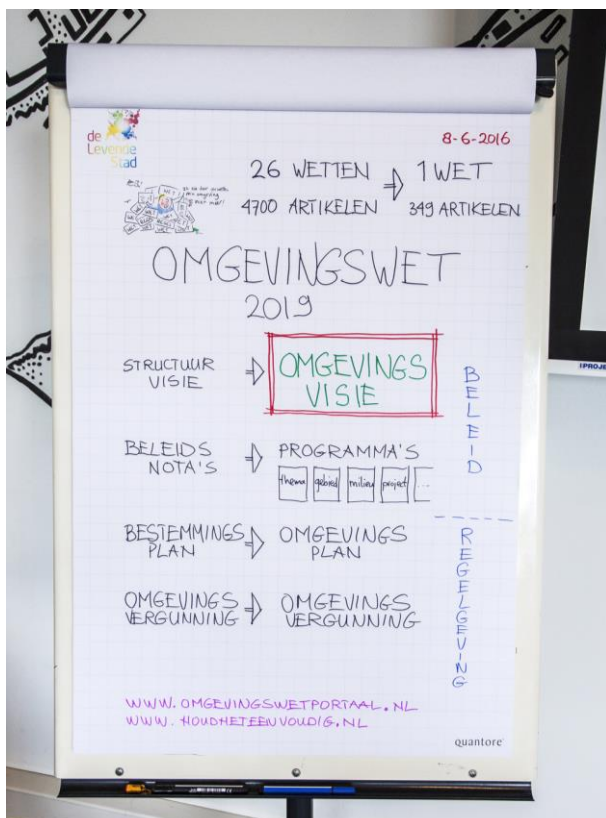 de
Levende
Stad
8-6-2016
26 WETTEN ⇒ 1 WET
4700 ARTIKELEN 349 ARTIKELEN
OMGEVINGSWET
2019
STRUCTUUR
VISIE
⇒
OMGEVINGS
VISIE
BELEIDS
NOTA'S
⇒
PROGRAMMA'S
thema gebied milieu project ...
BELEID
BESTEMMINGS
PLAN
⇒
OMGEVINGS
PLAN
OMGEVINGS
VERGUNNING
⇒
OMGEVINGS
VERGUNNING
REGELGEVING
WWW.OMGEVINGSWETPORTAAL.NL
WWW.HOUDHETEENVOUDIG.NL
quantore